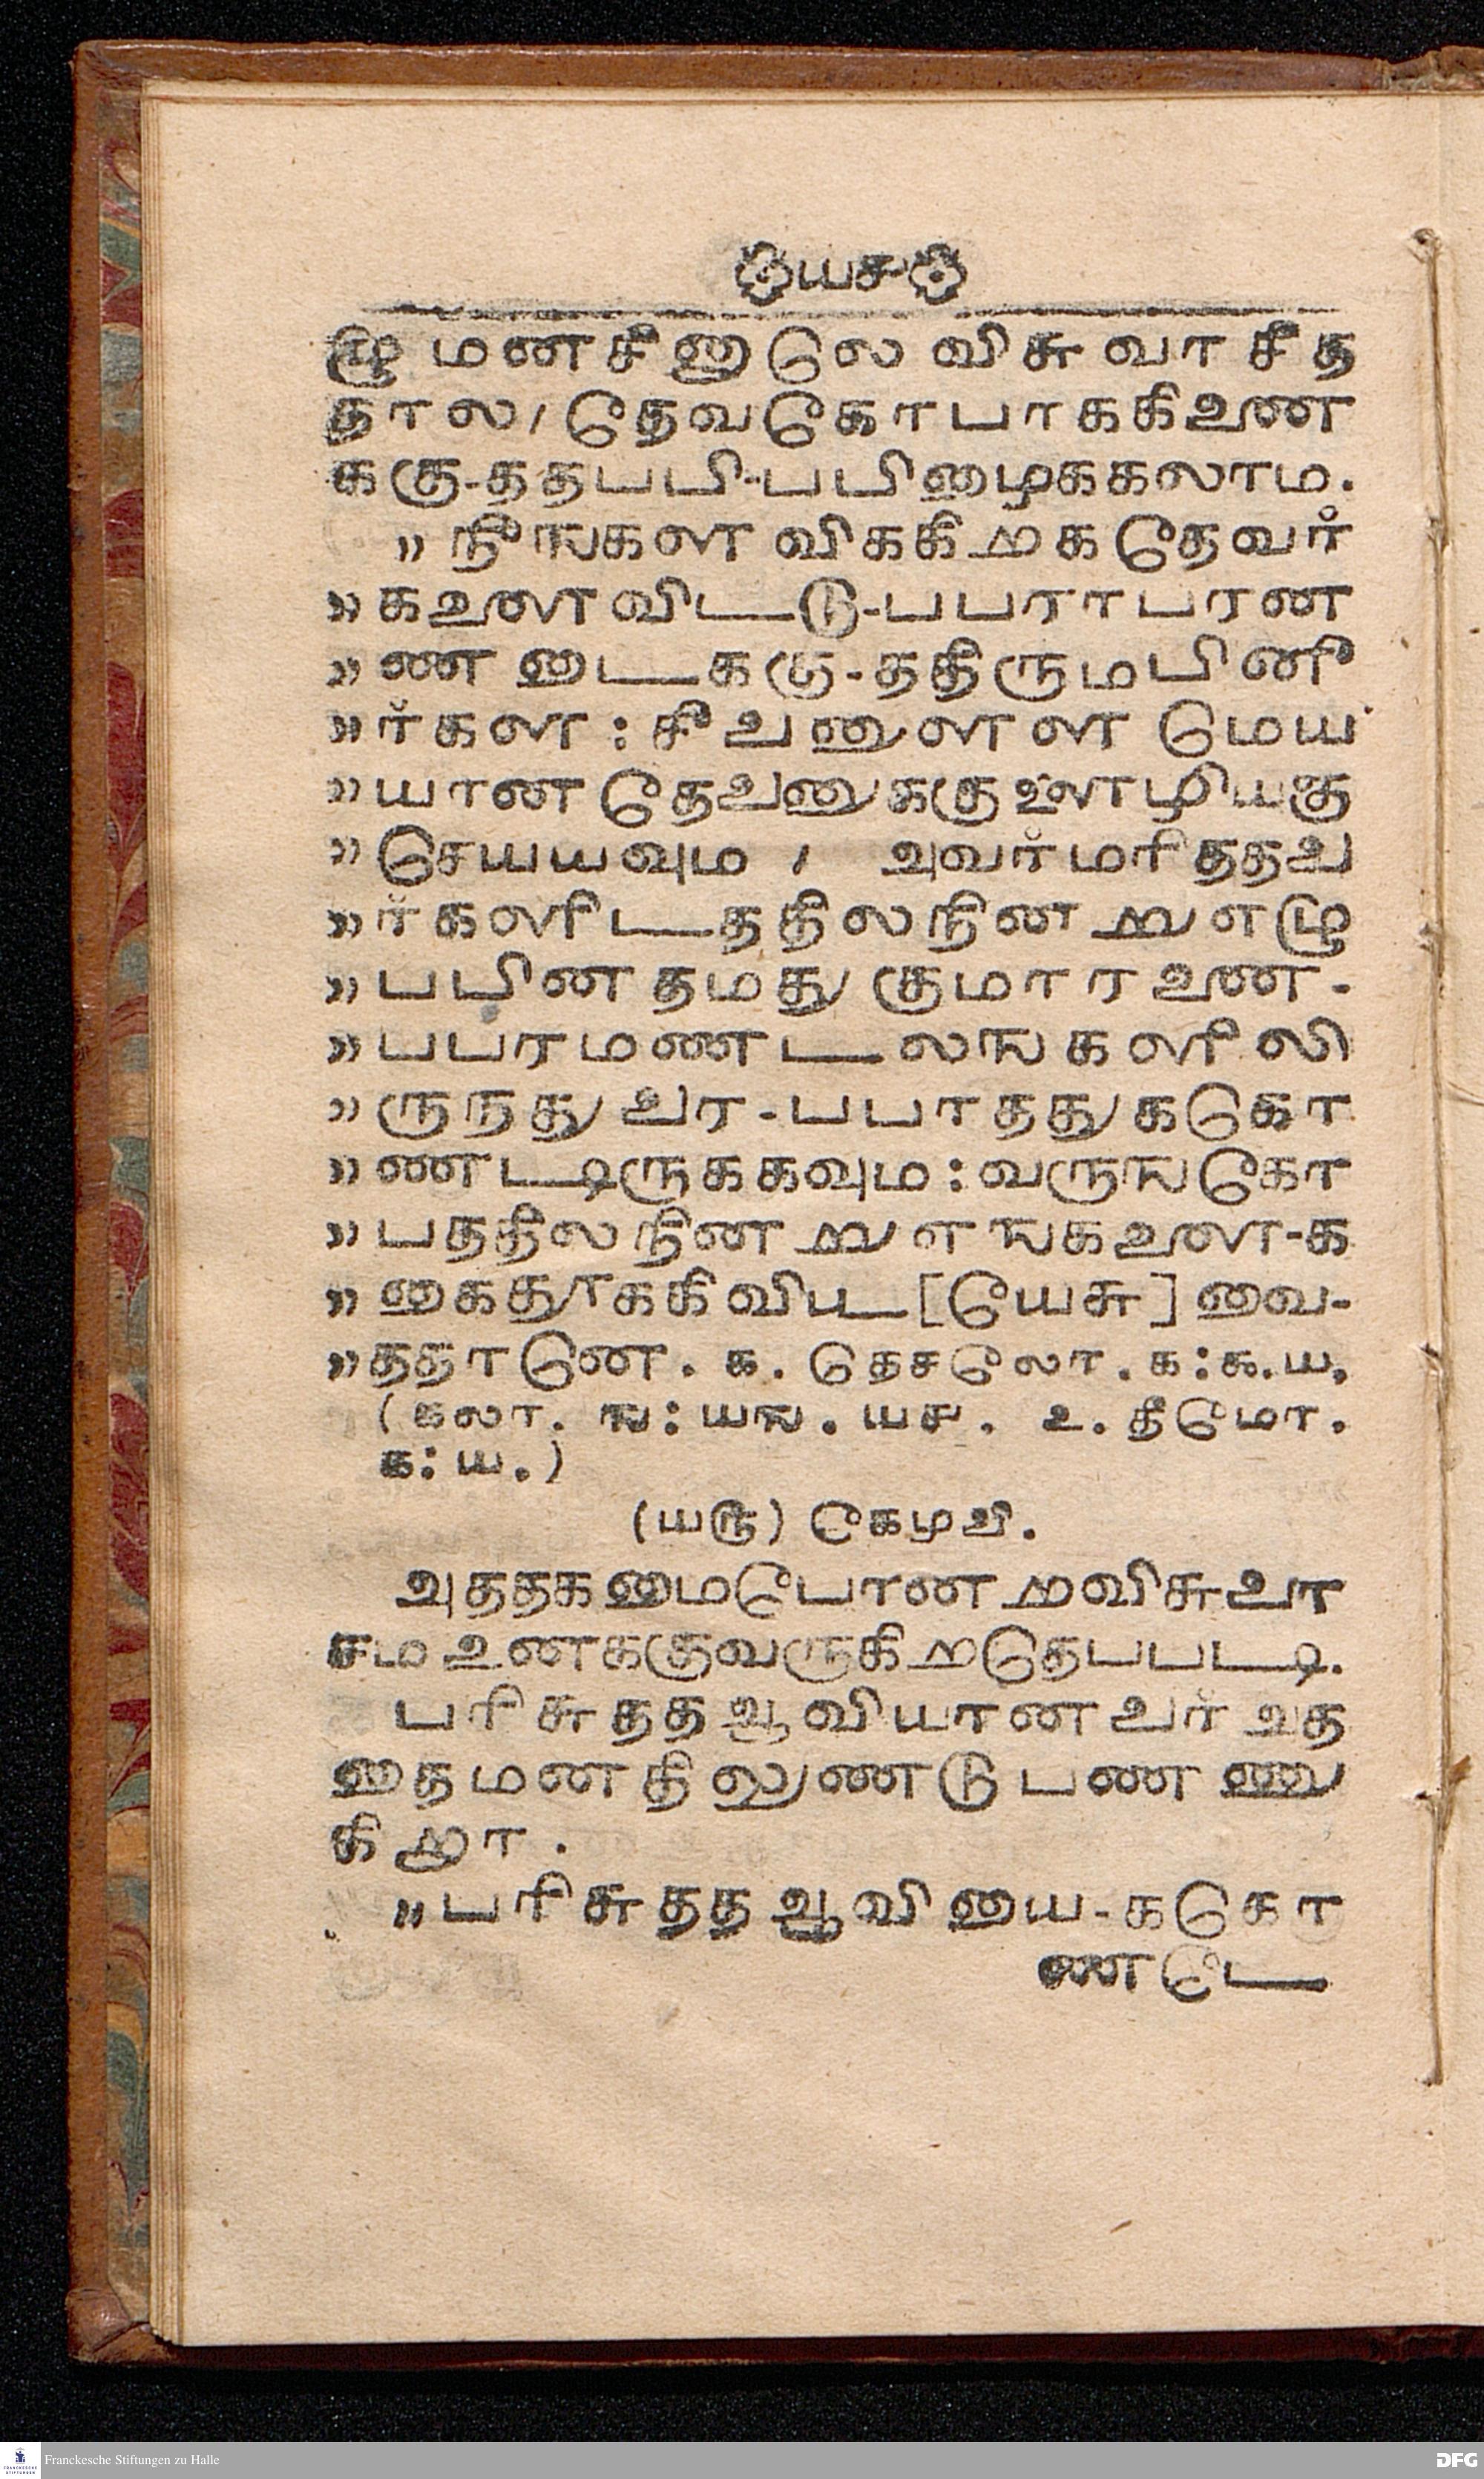 ௰௪
ழு மனசினாலே விசுவாசித
தால, தேவகோபாககினை
ககு-ததபபி-பபிழைககலாம.
» நீஙகள விககிறகதேவர்
» களைவிடடு-பபராபரன
» ணடைககு-ததிருமபினீ
» ர்கள : சீவனுளள மெய
» யான தேவனுககுஊழியஞ
» செயயவும , அவர்மரிததவ
» ர்களிடததிலநினறுஎழு
» பபினதமது குமாரனை-
» பபரமணடலஙகளிலி
» ருநதுவர-பபாததுககொ
» ணடிருககவும:வருஙகோ
» பததிலநினறுஎஙகளை-க
» கைதூககிவிட[யேசு]வை-
» ததானே. ௧. தெசலோ. ௧:௯.௰.
(கலா. ௩:௰௩.௰௪. ௨. தீமோ.
௧:௰.)
(௰௫) கேழவி.
அததகமைபோானறவிசுவா
சமஉனககுவருகிறதெபபடி.
பரிசுததஆவியானவர்அத
தைமனதிலுணடுபணணு
கிறா.
» பரிசுததஆவியை-ககொ
ணடே
Franckesche Stiftungen zu Halle
DFG